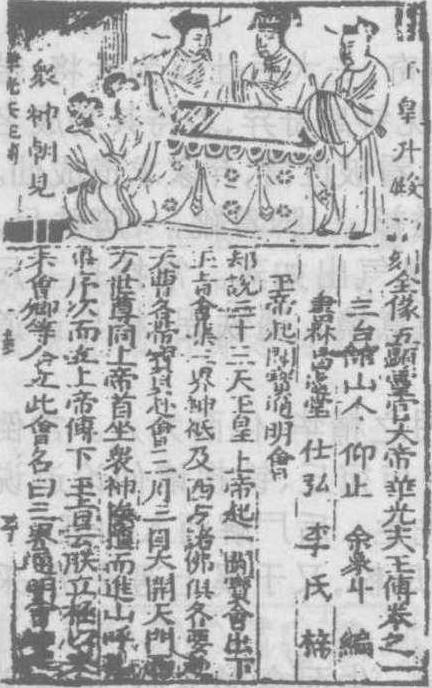 玉皇升殿
衆神朝見
刻全像五顯靈官大帝華光天王傳卷之一
三台館山人 仰止 余象斗 編
書林昌遠堂 仕弘 李氏 梓
玉帝起賽寶通明會
却說三十三天玉皇上帝起一賽寶會出下
玉旨會集三界神祇及西方諸佛俱各要
天曹各帶寶貝赴會二月三日大開天門
方世尊同上帝首坐衆神而進山呼
序次而立上帝傳下玉旨云朕立極以
未會卿等今立此會名曰三界通明會